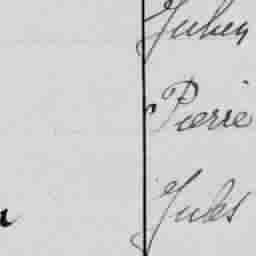 Julien
Pierre
Jules